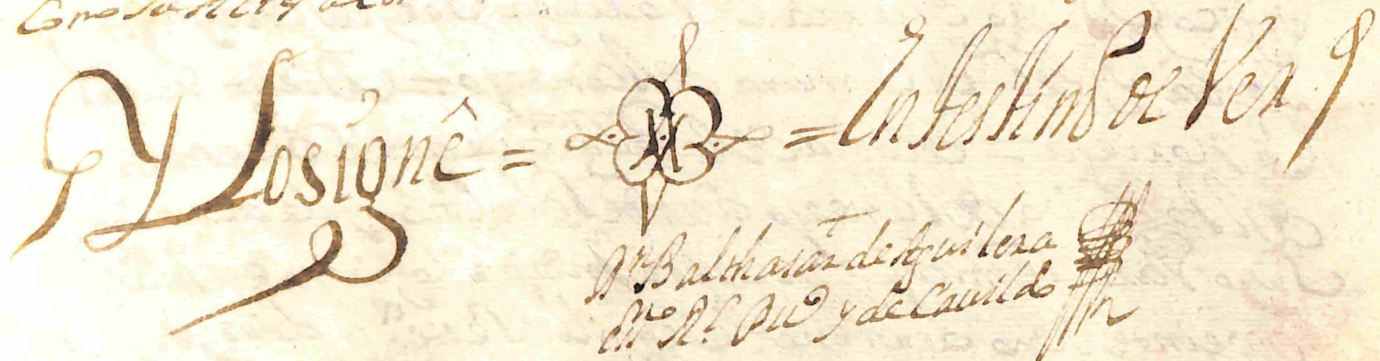 Y Lo signê = = En testimº de Verd
Dn Balthasar de Aguilera
Essno Rl Puco y de Cavildo